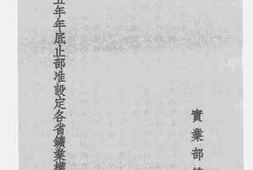 五年年底止部准設定各省鑛業權
實業部